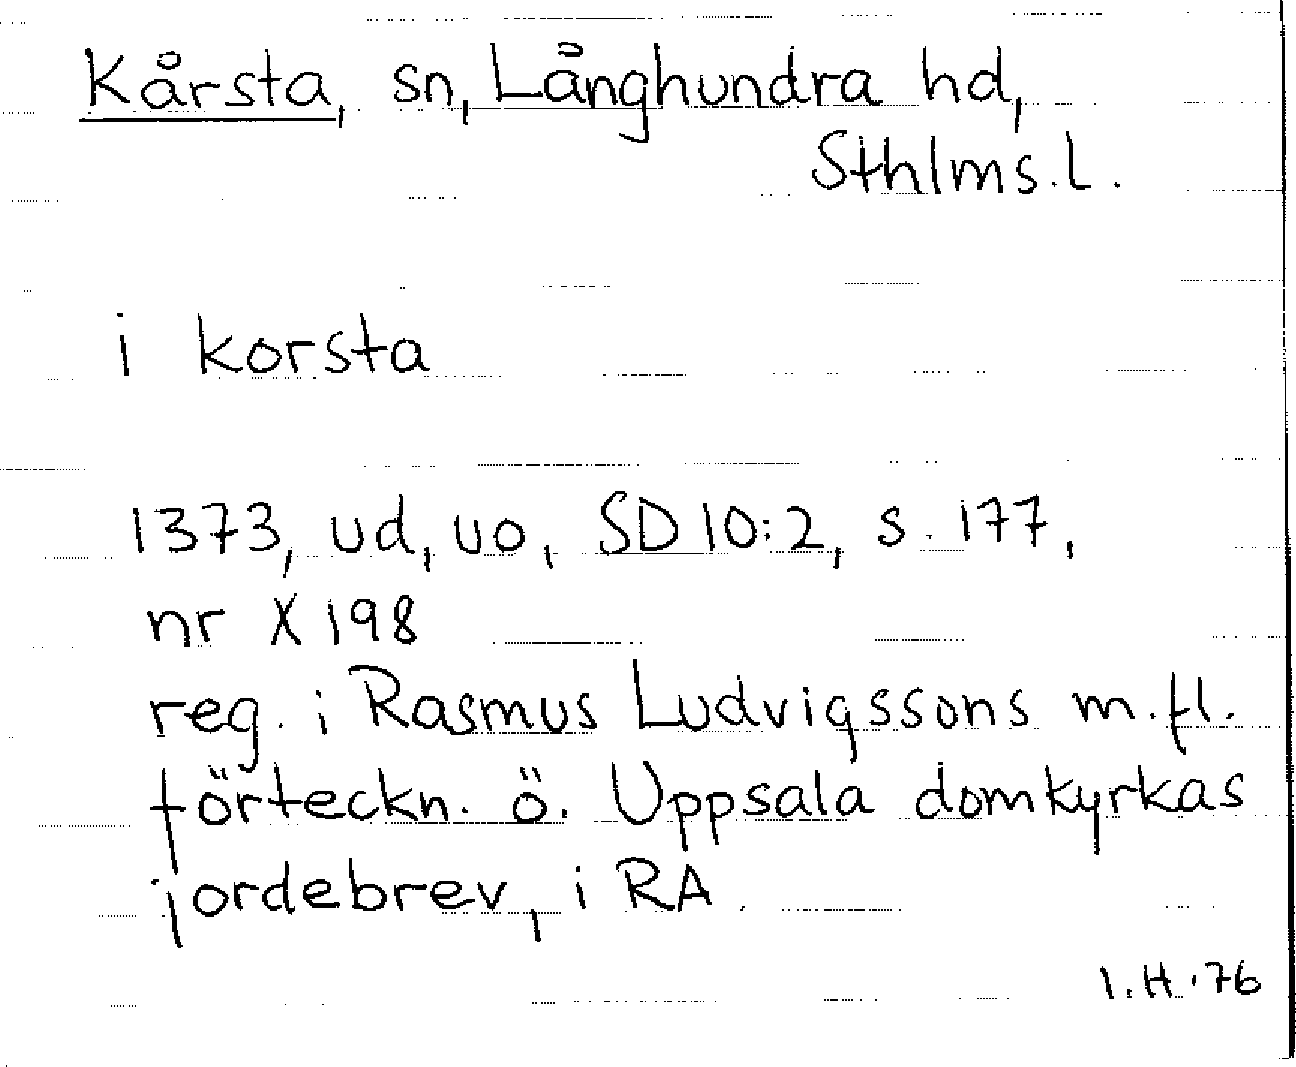 Kårsta, sn, Långhundra hd,
Sthlms.l.
i korsta
1373, ud, uo, SD 10:2, s. 177,
nr X 198
reg. i Rasmus Ludvigssons m.fl.
förteckn. ö. Uppsala domkyrkas
jordebrev, i RA.
I.H.'76